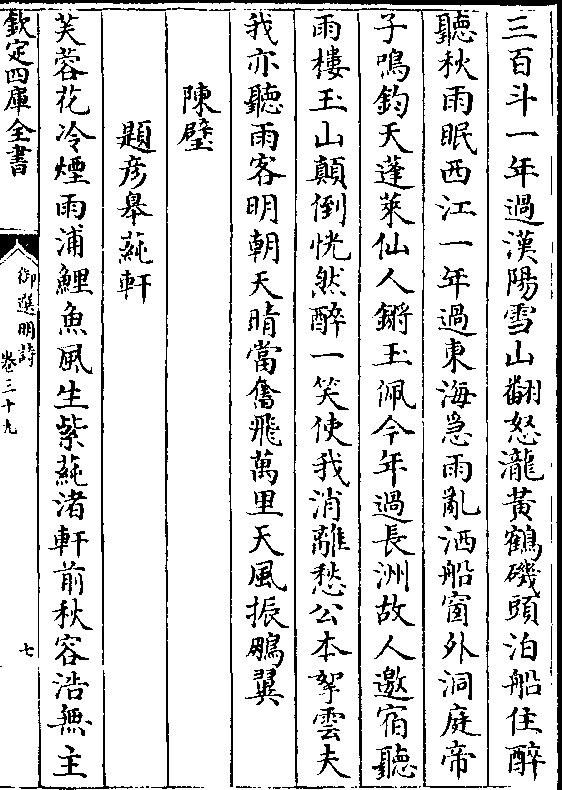 三百斗一年過漢陽雪山翻怒瀧黄鶴磯頭泊船住醉
聽秋雨眠西江一年過東海急雨亂洒船窗外洞庭帝
子鳴鈞天蓬萊仙人鏘玉佩今年過長洲故人邀宿聽
雨樓玉山顛倒恍然醉一笑使我消離愁公本挐雲夫
我亦聽雨客明朝天晴當奮飛萬里天風振鵬翼
陳璧
題彦舉蒓軒
芙蓉花冷煙雨浦鯉魚風生紫蒓渚軒前秋容浩無主
欽定四庫全書
御選明詩
卷三十九
七